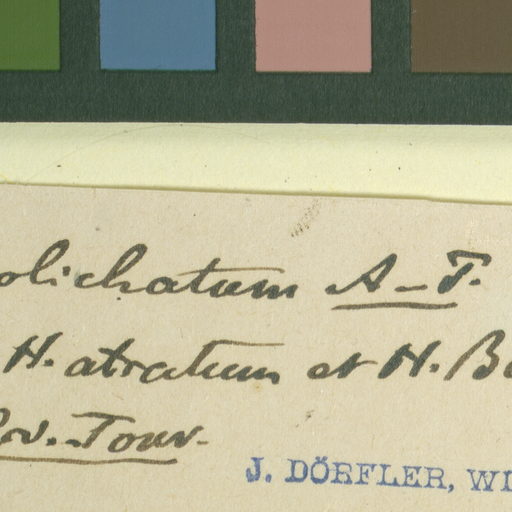 olichatum A-T.
H. atratum et H. Bo
v. Touv.
J. DÖRFLER, WI